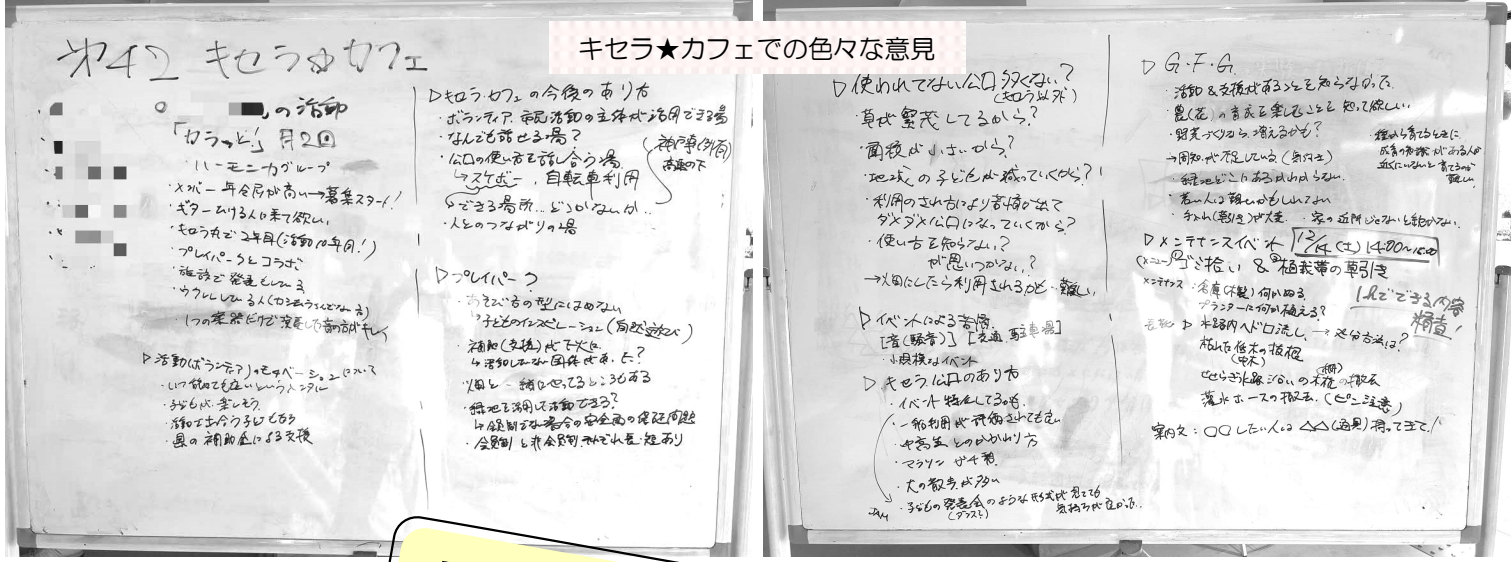 キセラ★カフェでの色々な意見
第42 キセラ☆カフェ
の活動
「カラっと」月2回
ハーモニカグループ
・メンバー年令層が高い→募集スタート!
・ギターひける人に来て欲しい
・キセラ力で2年目(活動10年目!)
・プレイパークとコラボ
・施設で発表もしている
・ウクレレしている人
・1つの楽器だけで演奏した音の方が
▷活動(ボランティア)のモチベーションについて
・いつ辞めても良いというメンタル
・子どもが楽しそう
・活動で出合う子どもたち
・県の補助金による支援
▷キセラカフェの今後のあり方
・ボランティア、市民活動の主体が活用できる場
・なんでも話せる場?
・公口の使い方を話し合う場
↳スケボー、自転車利用
できる場所…どこかないか…
神戸市(外有)
高速の下
・人とのつながりの場
▷プレイパーク
・あそび方の型にはめない
↳子どものインスピレーション(自然遊び)
・補助(支援)が
↳活動しない団体があった?
・畑と一緒にやってるところもある
・緑地を活用して活動できる?
↳会員制でない場合の安全面の保証問題
・会員制と非会員制それぞれ長・短あり
▷使われてない公口多くない?
(キセラ以外)
・草が繁茂してるから?
・面積が小さいから?
・地域の子どもが減っていくから?
・利用のされ方により苦情が出て
ダメダメ公口になっていくから?
・使い方を知らない?
が思いつかない?
→畑にしたら利用されるかも…難しい
▷イベントによる苦情
[音(騒音)][交通、駐車場]
・小規模なイベント
▷キセラ公口のあり方
・イベント特化してるかも
・一般利用が評価されても良い
・中高生とのかかわり方
・マラソン
・犬の散歩が多い
・子どもの発表会のような形式が見てても
(ブラスト)
気持ちが良かった
▷G・F・G
・活動&支援があることを知らなかった
・農(花)の育成を楽しむことを知って欲しい
・野菜づくりなら、増えるかも?
→周知が不足している
・緑地どこにあるかわからない
・若い人は難しいかもしれない
・種から育てるときに
成育の知識がある人が
近くにいないと育てるのが
難しい
・家の近所じゃないと続かない
▷メンテナンスイベント 12/14(土)14:00〜16:00
(メニュー)①ゴミ拾い&②植栽帯の草引き
メンテナンス:倉庫(木製)何かぬる
プランターに何か植える?
1hでできる内容
精査!
水路内ヘドロ流し→処分方法は?
枯れた低木の抜根
(中木)
せせらぎ水路沿いの
灌水ホースの撤去(ピン注意)
案内文:○○したい人は△△(道具)持ってきて!